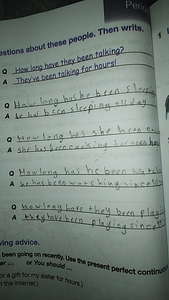 Perio
estions about these people. Then write.
Q How long have they been talking?
A They've been talking for hours!
Q How long has he been sleepin
A he has been sleeping all day
Q How long has she been
A she has been cooking
Q How long has he been watch
A he has been watching since
Q How long have they been play
A they have been playing since
ving advice.
been going on recently. Use the present perfect continuou
er ... or You should ...
or a gift for my sister for hours.)
n the internet.)